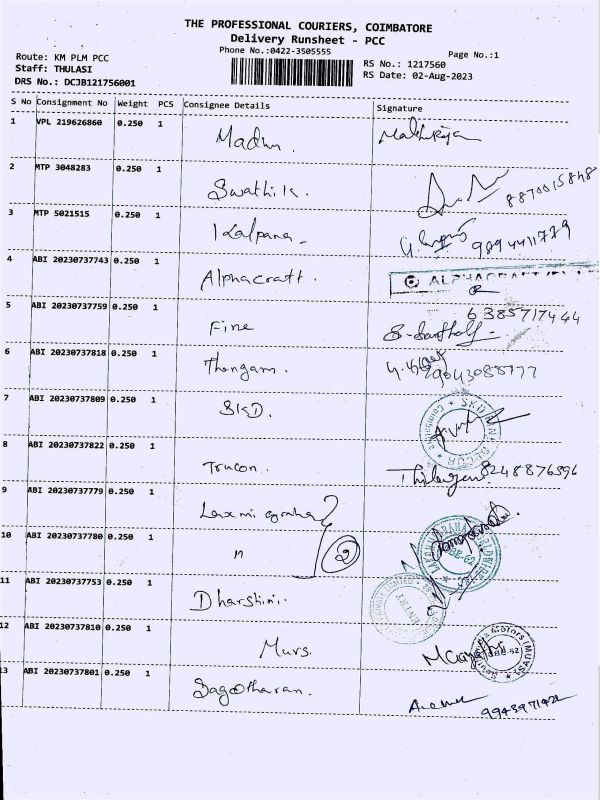 THE PROFESSIONAL COURIERS, COIMBATORE
Delivery Runsheet - PCC
Phone No.:0422-3505555
Page No.:1
Route: KM PLM PCC
Staff: THULASI
DRS No.: DCJB121756001
RS No.: 1217560
RS Date: 02-Aug-2023
S No Consignment No Weight PCS Consignee Details Signature
1 VPL 219626860 0.250 1 Madhu.
2 MTP 3048283 0.250 1 Swathi k. 8870015848
3 MTP 5021515 0.250 1 Kalpana. 9894411779
4 ABI 20230737743 0.250 1 Alphacraft. ALPHACRAFT
5 ABI 20230737759 0.250 1 Fine 6385717444
6 ABI 20230737818 0.250 1 Thangam.
7 ABI 20230737809 0.250 1 SKD.
8 ABI 20230737822 0.250 1 Trucon. 8248876596
9 ABI 20230737779 0.250 1 Laxmi
10 ABI 20230737780 0.250 1 " 2
11 ABI 20230737753 0.250 1 Dharshini.
12 ABI 20230737810 0.250 1 Murs.
13 ABI 20230737801 0.250 1 Sagotharan.